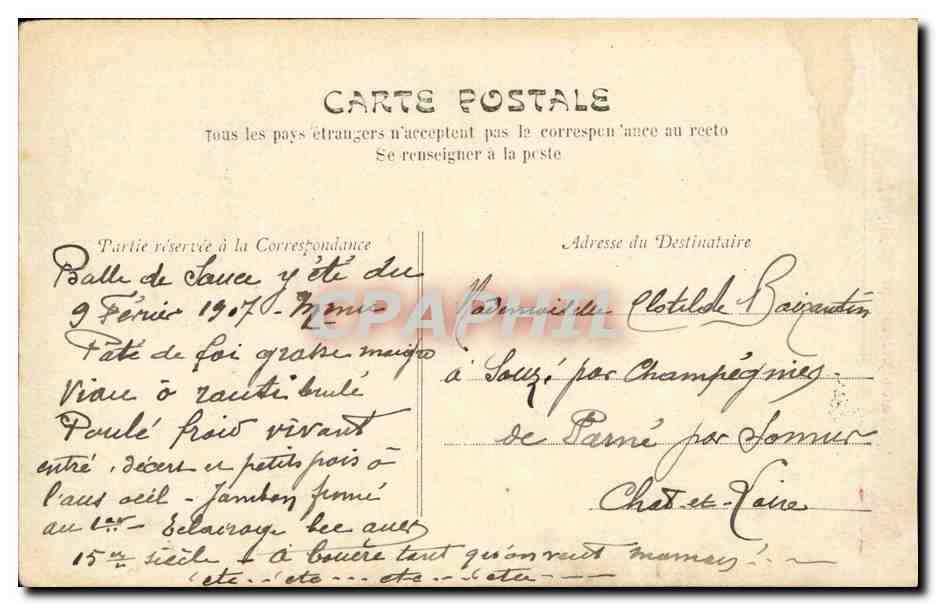 CARTE POSTALE
Tous les pays étrangers n'acceptent pas la correspondance au recto
Se renseigner à la poste
Partie réservée à la Correspondance
Balle de Souce y été du
9 Février 1907 -
Pâté de foi grasse maigre
Viau ô rauti brulé
Poulé froid vivant
entré, décert et petits pois ô
l'aus oeil - Jambon fumé
au - Eclairage bec auer
15 siècle - à bouère tant qu'on veut
etc - etc - etc - etc
Adresse du Destinataire
Mademoiselle Clotilde
à Souzé par Champégnies
de Parné par Somur
-et-Loire
CPAPHIL